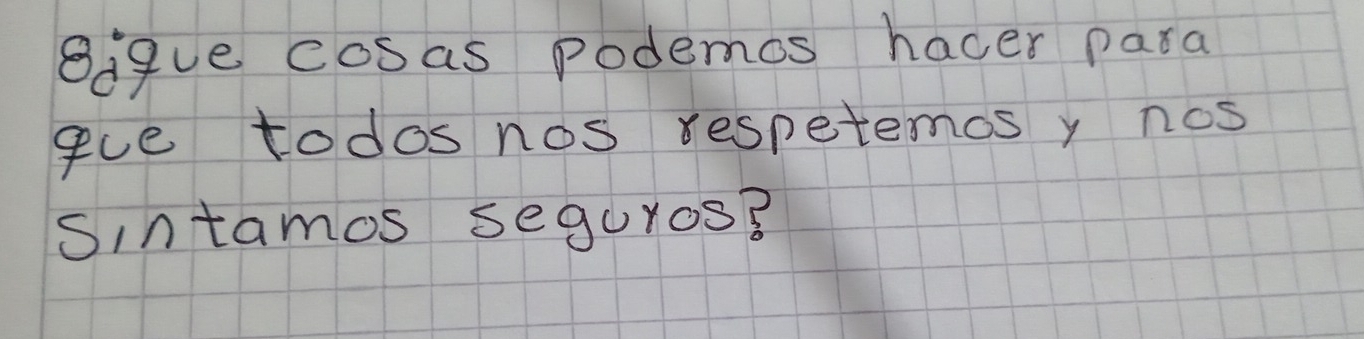 8¿que cosas podemos hacer para
que todos nos respetemos y nos
sintamos seguros?